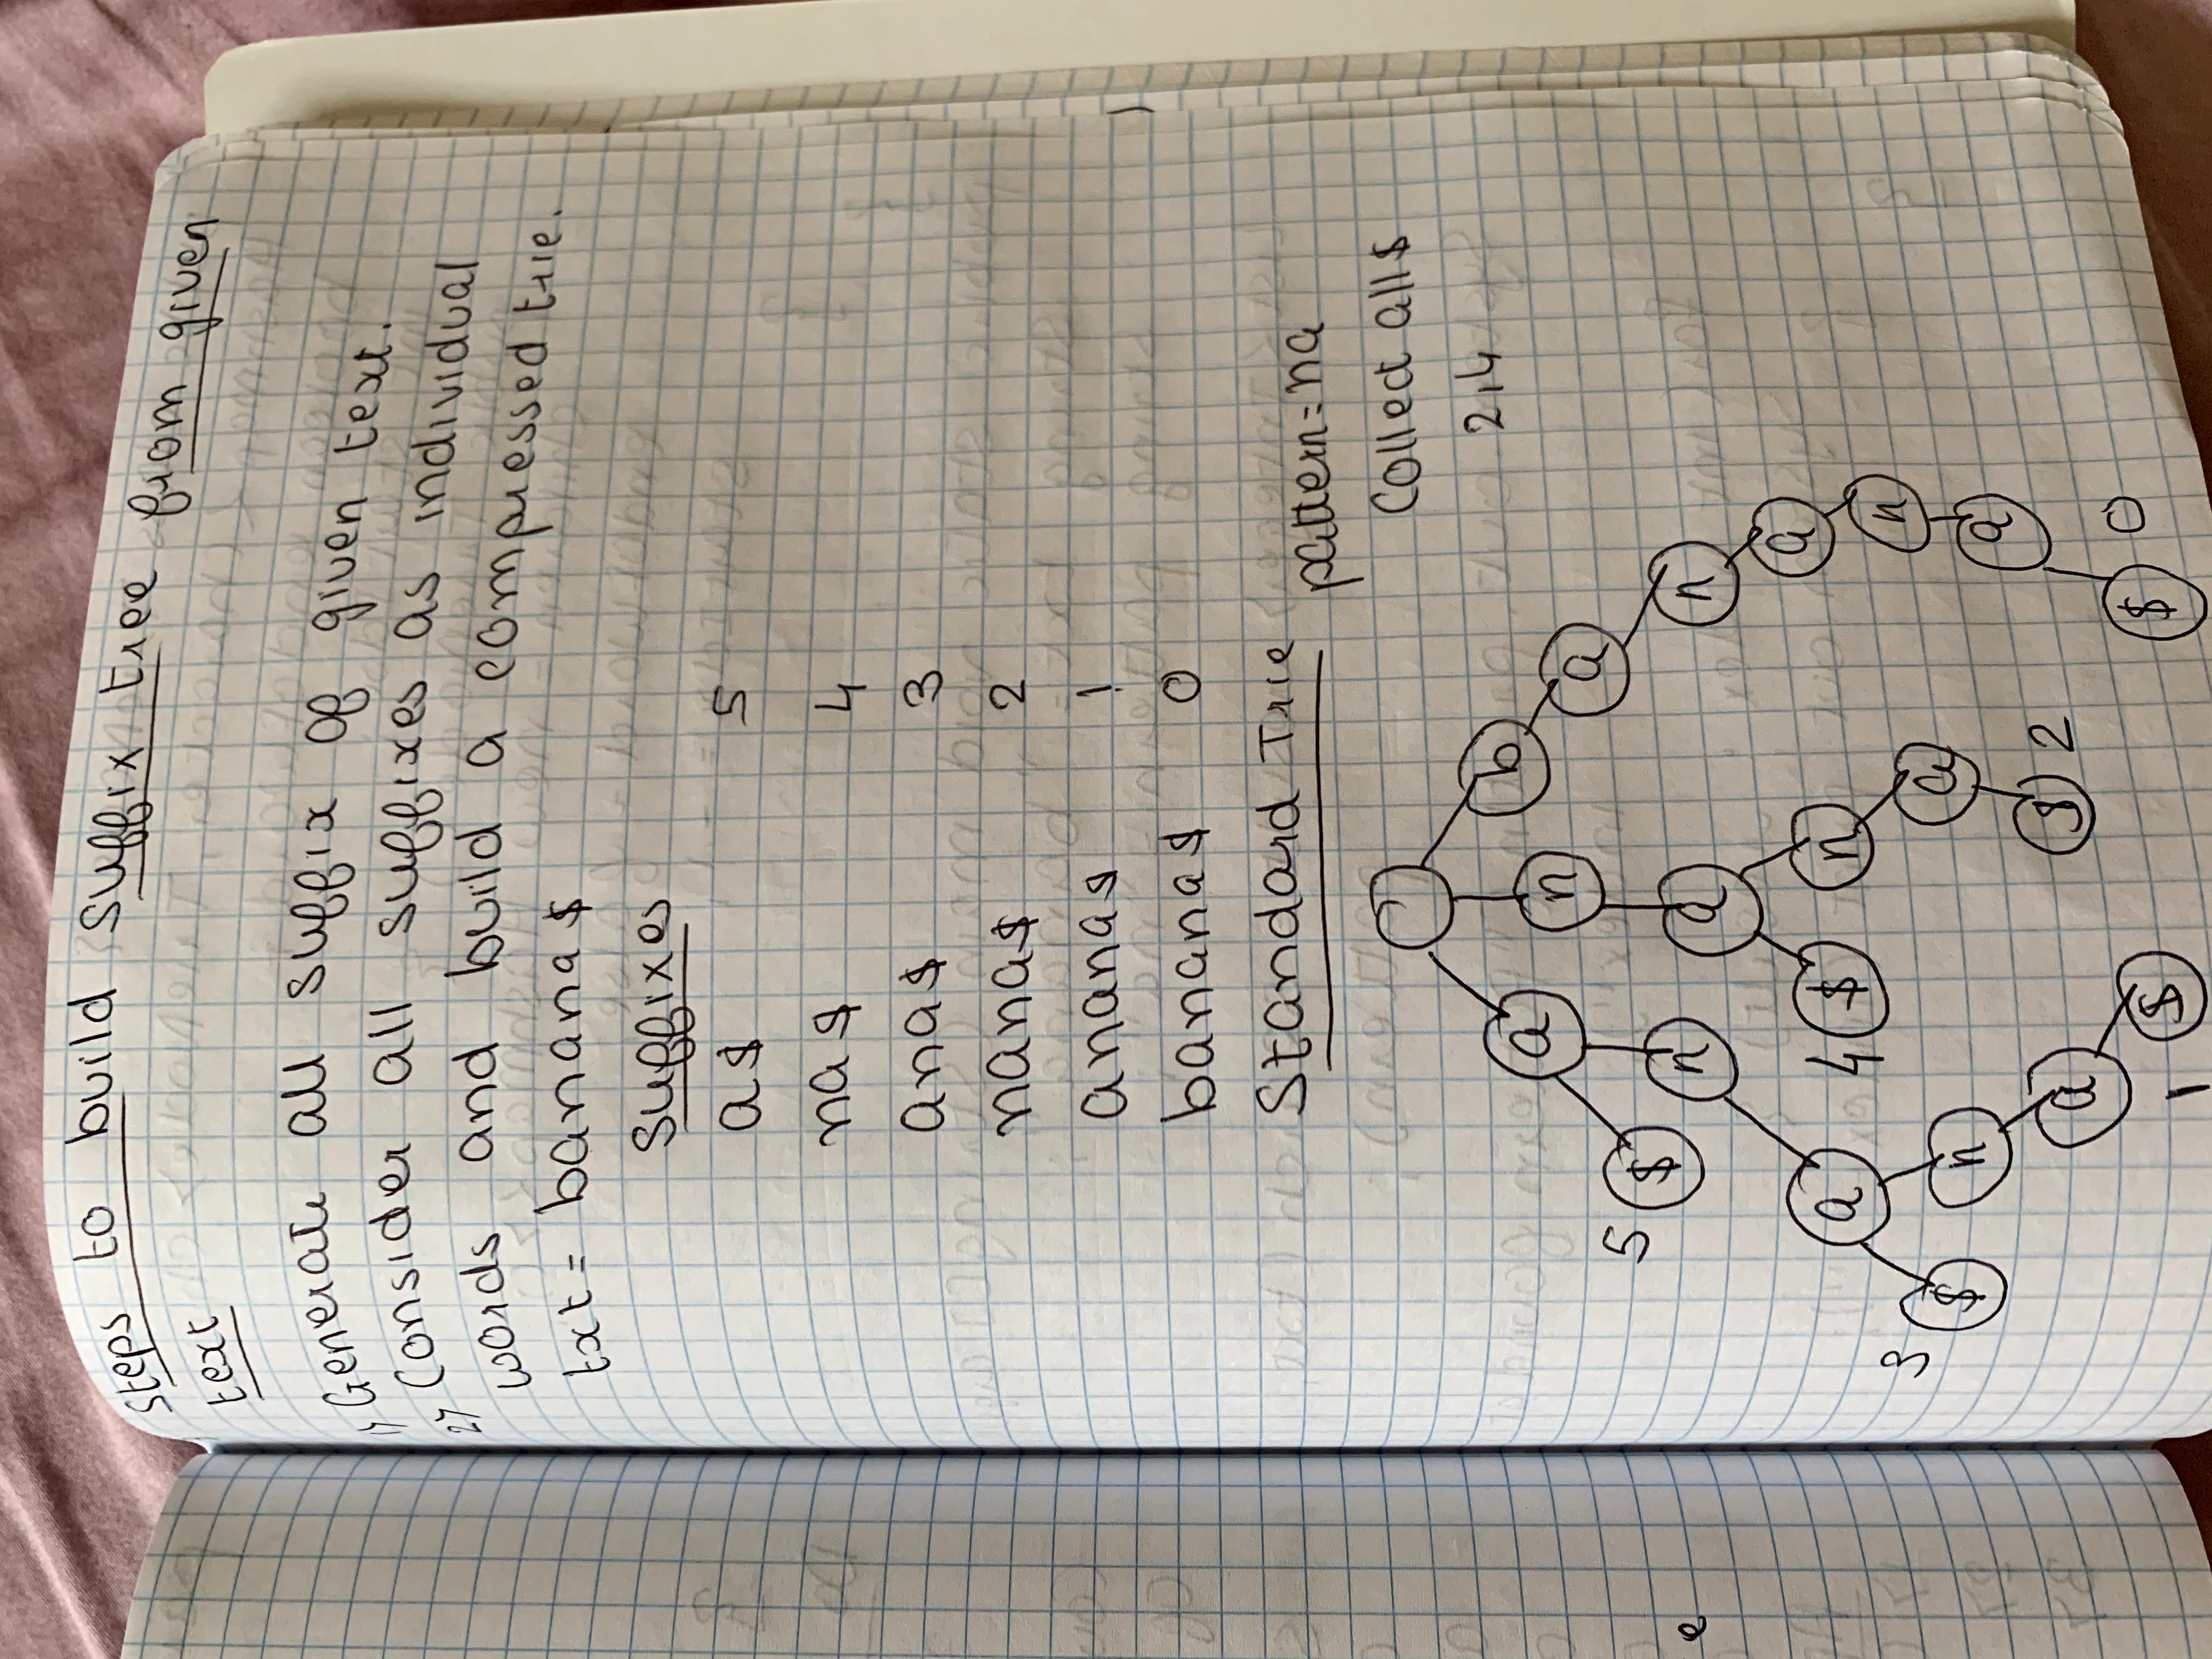 steps to build suffix tree from given
text
1) Generate all suffix of given text.
2) Consider all suffixes as individual
words and build a compressed trie.
txt = banana$
suffixes
a$ 5
na$ 4
ana$ 3
nana$ 2
anana$ 1
banana$ 0
Standard Trie
pattern=na
Collect all$
2,4
a n b
a
5 $ n a n
a
a 4 $ n
n
3 $ n a
a
a $ 2
1 $ $ 0
e